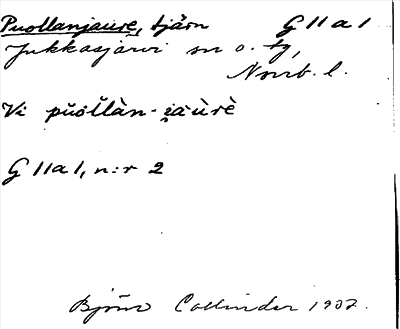 Puollanjaure, tjärn G 11 a 1
Jukkasjärvi sn o. tg,
Norrb. l.
Vi pŭŏl̆làn-jàùrè
G 11a1, n:r 2
Björn Collinder 1937.